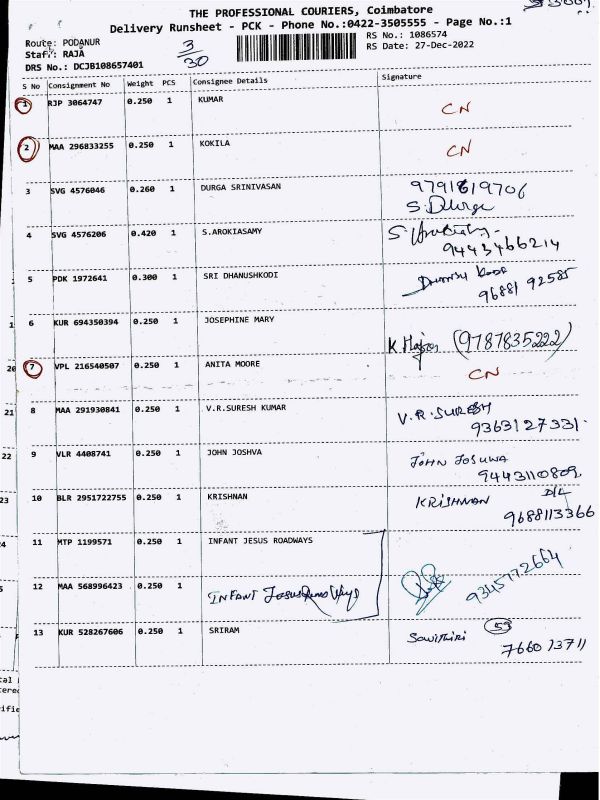 THE PROFESSIONAL COURIERS, Coimbatore
Delivery Runsheet - PCK - Phone No.:0422-3505555 - Page No.:1
Route: PODANUR
RS No.: 1086574
Staff: RAJA
3/30
RS Date: 27-Dec-2022
DRS No.: DCJB108657401
S No Consignment No Weight PCS Consignee Details Signature
1 RJP 3064747 0.250 1 KUMAR CN
2 MAA 296833255 0.250 1 KOKILA CN
3 SVG 4576046 0.260 1 DURGA SRINIVASAN 9791619706
S. Durga
4 SVG 4576206 0.420 1 S.AROKIASAMY
9443466214
5 PDK 1972641 0.300 1 SRI DHANUSHKODI
96881 92585
6 KUR 694350394 0.250 1 JOSEPHINE MARY
(9787835222)
7 VPL 216540507 0.250 1 ANITA MOORE CN
8 MAA 291930841 0.250 1 V.R.SURESH KUMAR V.R.SURESH
9363127331.
9 VLR 4408741 0.250 1 JOHN JOSHVA JOHN JOSUWA
9443110809.
10 BLR 2951722755 0.250 1 KRISHNAN KRISHNAN D/L
9688113366
11 MTP 1199571 0.250 1 INFANT JESUS ROADWAYS
12 MAA 568996423 0.250 1 INFANT JESUS Road Ways 9345772664
13 KUR 528267606 0.250 1 SRIRAM Sowithiri 59
766013711
20
21
22
23